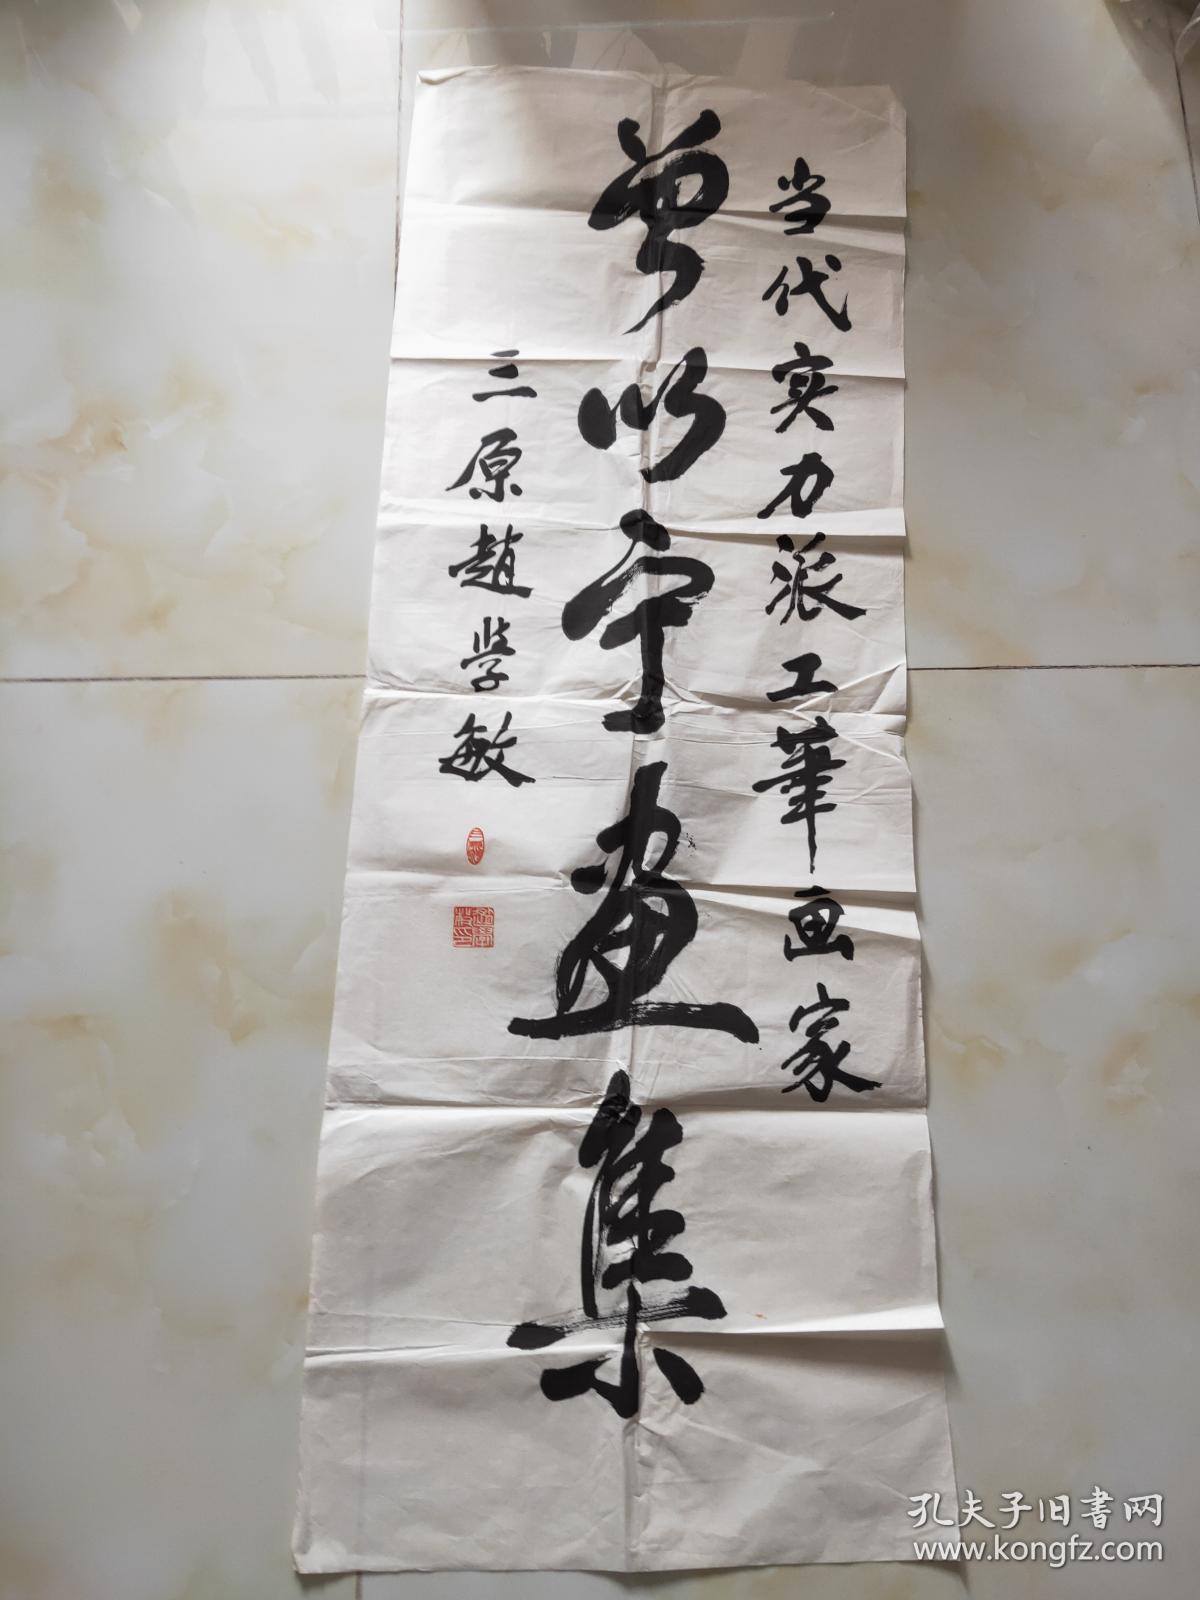 当代实力派工筆画家
曾以宁畫集
三原趙学敏
孔夫子旧書网
www.kongfz.com